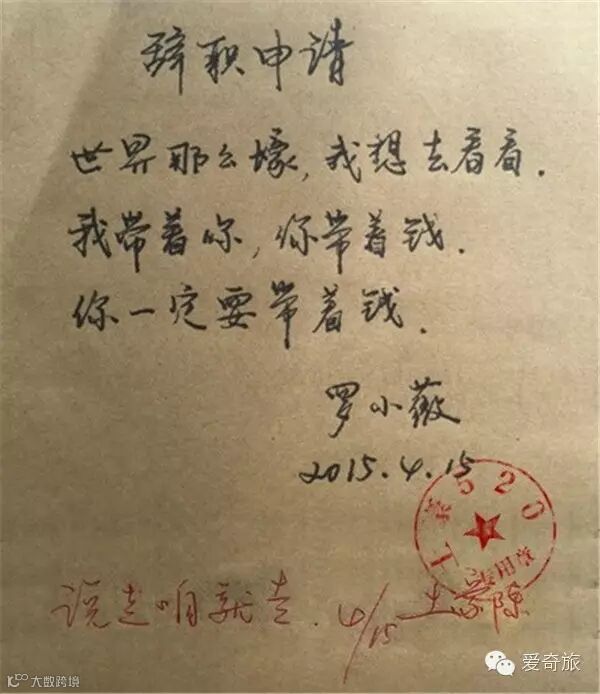 辞职申请
世界那么壕,我想去看看.
我带着你,你带着钱.
你一定要带着钱.
罗小薇
2015.4.15
520
专用章
说走咱就走. 4/15
爱奇旅
大数跨境